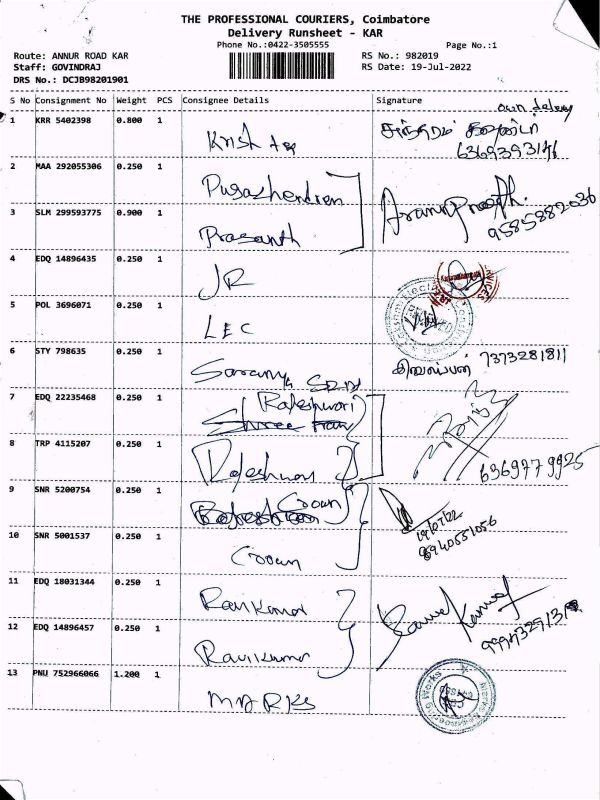 THE PROFESSIONAL COURIERS, Coimbatore
Delivery Runsheet - KAR
Phone No.:0422-3505555 Page No.:1
Route: ANNUR ROAD KAR RS No.: 982019
Staff: GOVINDRAJ RS Date: 19-Jul-2022
DRS No.: DCJB98201901
S No Consignment No Weight PCS Consignee Details Signature
own delivery
1 KRR 5402398 0.800 1
6369393141
2 MAA 292055306 0.250 1 Pugazhendran
3 SLM 299593775 0.900 1 Prasanth 9585882036
4 EDQ 14896435 0.250 1 JR
5 POL 3696071 0.250 1 LEC
6 STY 798635 0.250 1 Saranya 7373281811
7 EDQ 22235468 0.250 1 Rajeshwari
8 TRP 4115207 0.250 1 Rajeshwari 6369779925
9 SNR 5200754 0.250 1 Crown
19/07/22
8940551056
10 SNR 5001537 0.250 1 Crown
11 EDQ 18031344 0.250 1 Ravikumar
12 EDQ 14896457 0.250 1 Ravikumar
13 PNU 752966066 1.200 1